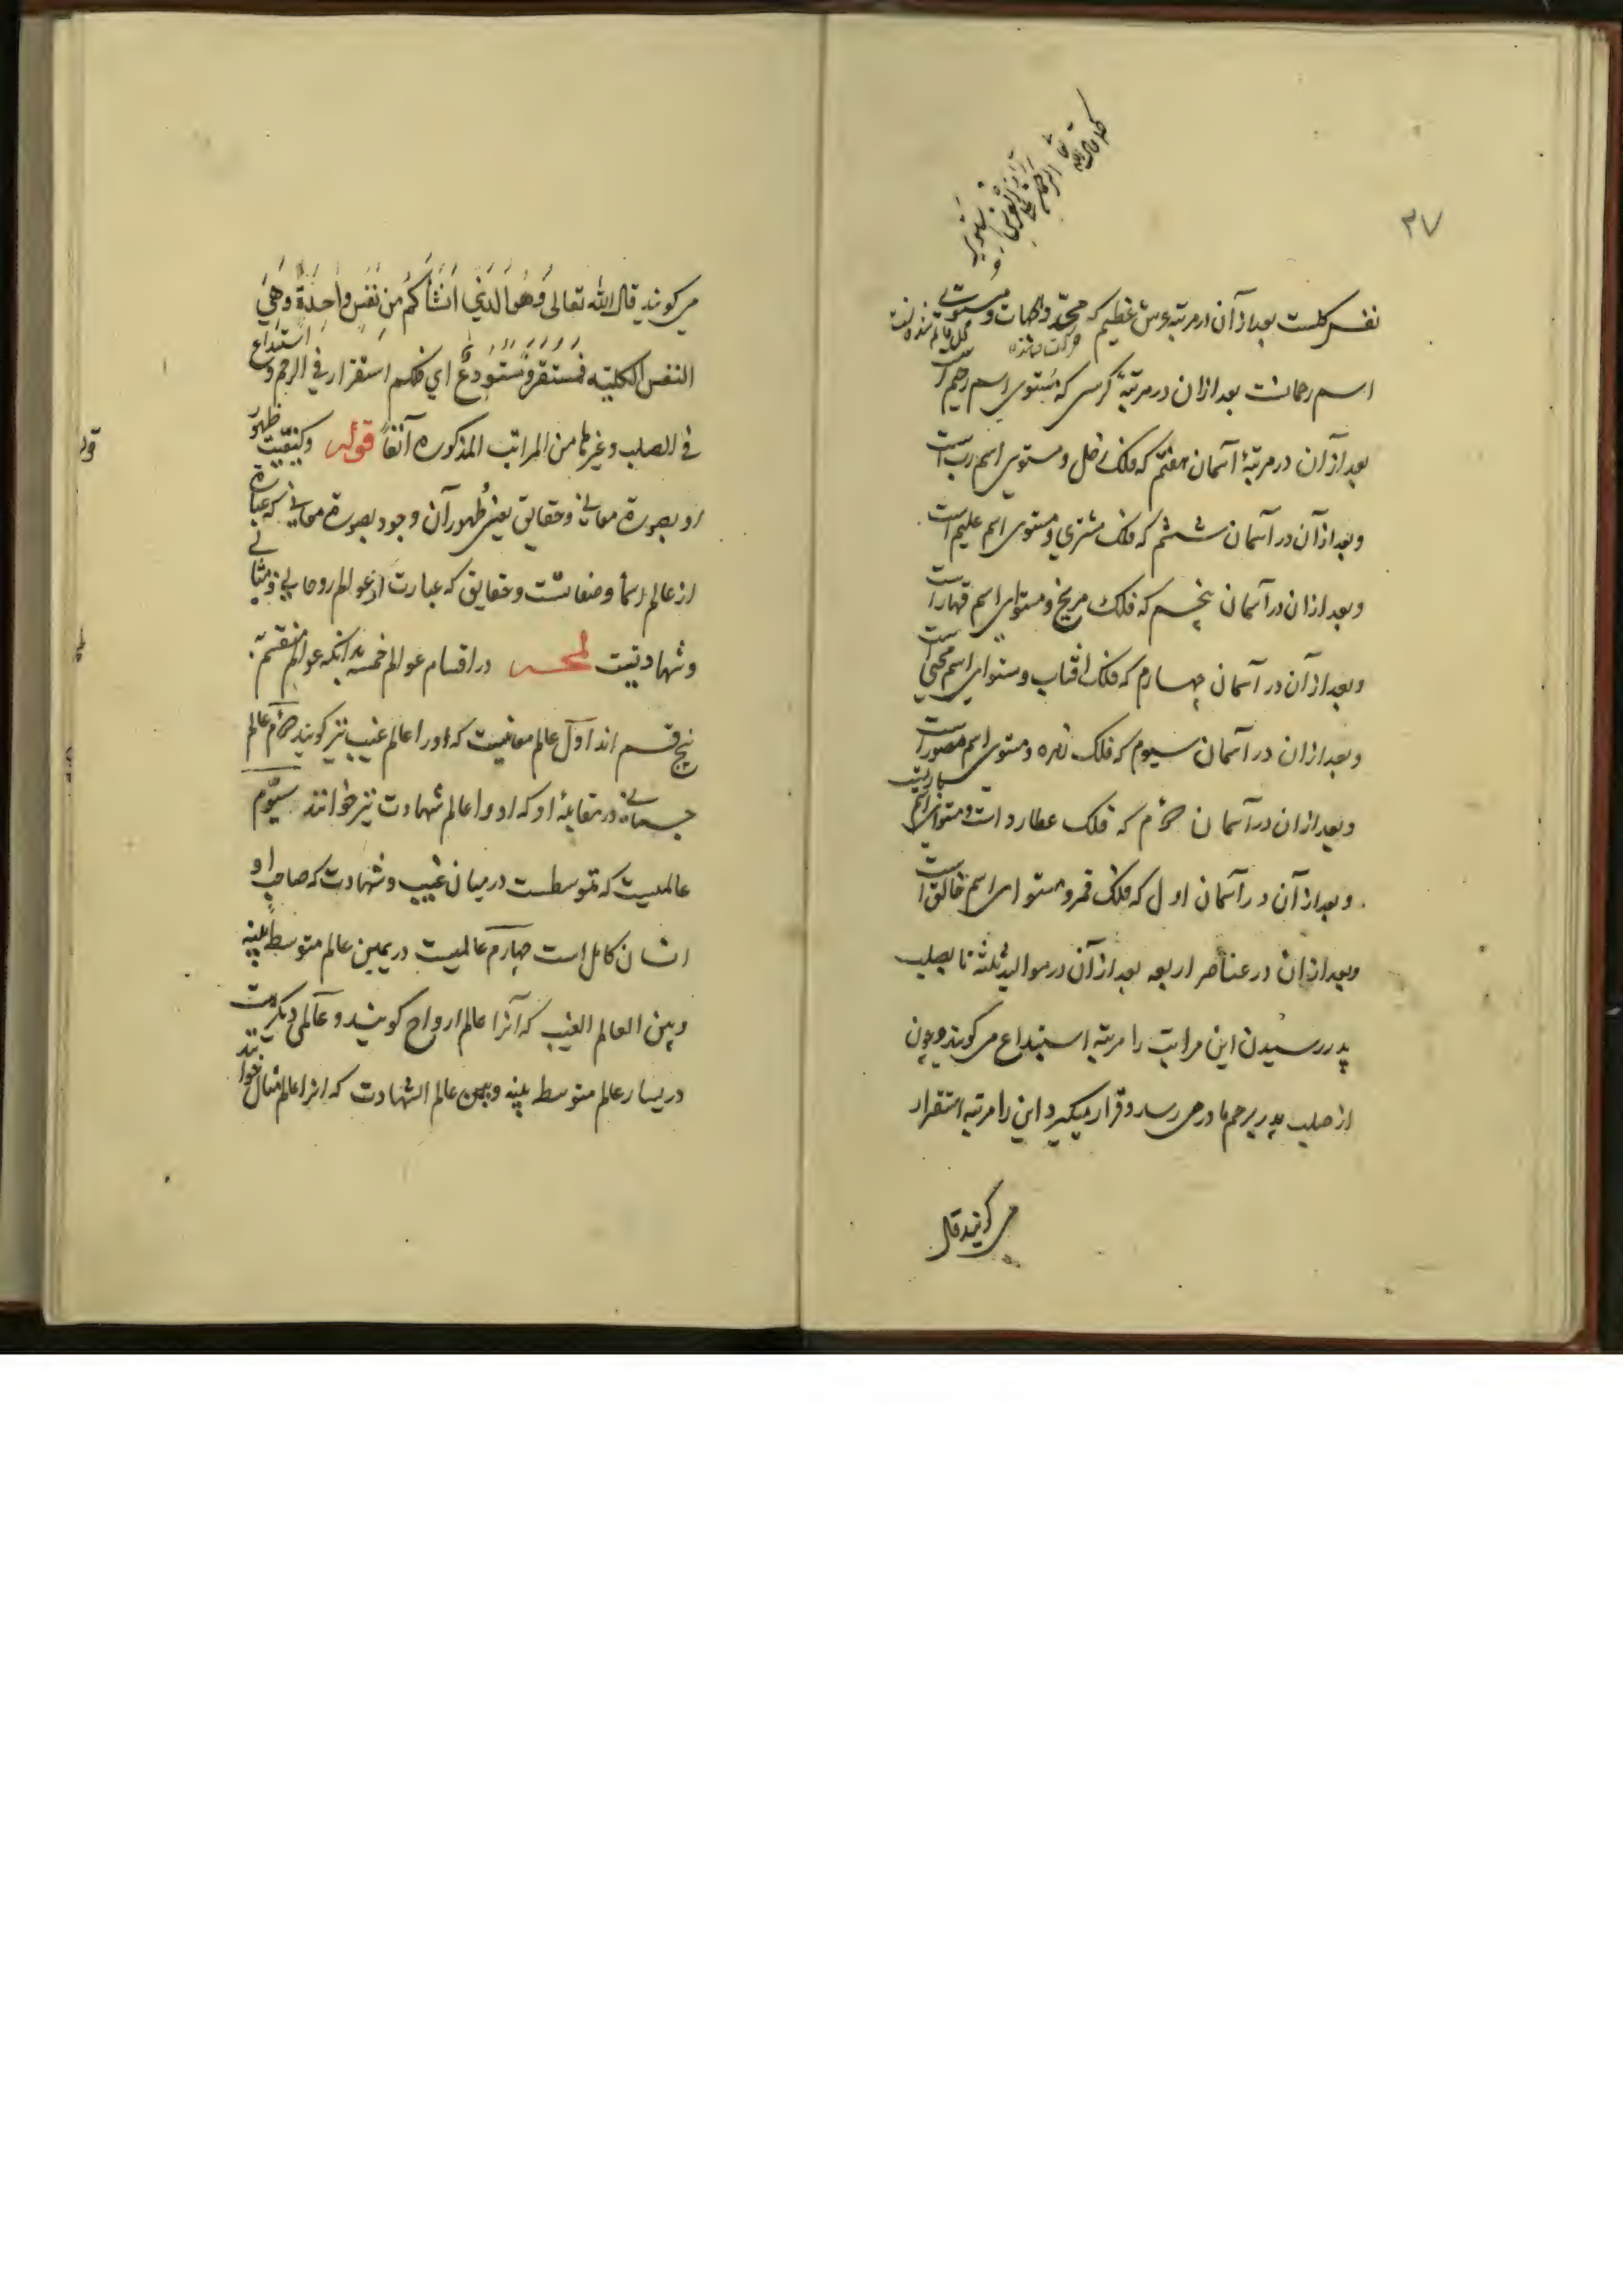 ۳۷
کما قال الله تعالی الرحمن علی العرش استوی
نفس کلست بعد از آن در مرتبه عرش عظیم که محدد الجهات و مستوی
اسم رحمانست بعد ازان در مرتبهٔ کرسی که مستوی اسم رحیم است
بعد از آن در مرتبهٔ آسمان هفتم که فلک زحل و مستوی اسم رب است
و بعد از آن در آسمان ششم که فلک مشتری و مستوی اسم علیم است
و بعد ازان در آسمان پنجم که فلک مریخ و مستوای اسم قهار است
و بعد از آن در آسمان چهارم که فلک افتاب و مستوای اسم محیی است
و بعد ازان در آسمان سیوم که فلک زهره و مستوی اسم مصور است
و بعد ازان در آسمان دوم که فلک عطارد است و مستوای اسم باریست
و بعد از آن در آسمان اول که فلک قمر و مستوای اسم خالق است
و بعد ازان در عناصر اربعه بعد از آن در موالید ثلثه تا بصلب
پدر رسیدن این مراتب را مرتبه استیداع می کویند و چون
از صلب پدر برحم مادر می رسد و قرار میکیرد این را مرتبه استقرار
می کویند قال
می کویند قال الله تعالی وَهُوَ الَّذِي أَنْشَأَكُمْ مِنْ نَفْسٍ وَاحِدَةٍ وَهِيَ
النفس الکلیه فَمُسْتَقَرٌّ وَمُسْتَوْدَعٌ ای فلکم استقرار فی الرحم و استیداع
فی الصلب و غیرها من المراتب المذکوره آنفاً قوله و کیفیت ظهور
او بصورة معانی و حقایق یعنی ظهور آن وجود بصورة معانی که عبارة
از عالم اسما و صفاتست و حقایق که عبارت از عوالم روحانی و مثالی
و شهادتیت لمحه در اقسام عوالم خمسه بدانکه عوالم منقسم بر
پنج قسم اند اوّل عالم معانیست که اورا عالم غیب نیز کویند دوم عالم
جسمانی در مقابلهٔ او که او را عالم شهادت نیز خوانند سیّوم
عالمیست که متوسطست در میان غیب و شهادت که صاحب او
انسان کامل است چهارم عالمیست در یمین عالم متوسط بینه
و بین العالم الغیب که آنرا عالم ارواح کویند و عالمی دیکرست
در یسار عالم متوسط بینه و بین عالم الشهادت که انرا عالم مثال خوانند